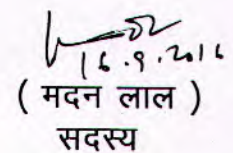 16.9.2016
( मदन लाल )
सदस्य